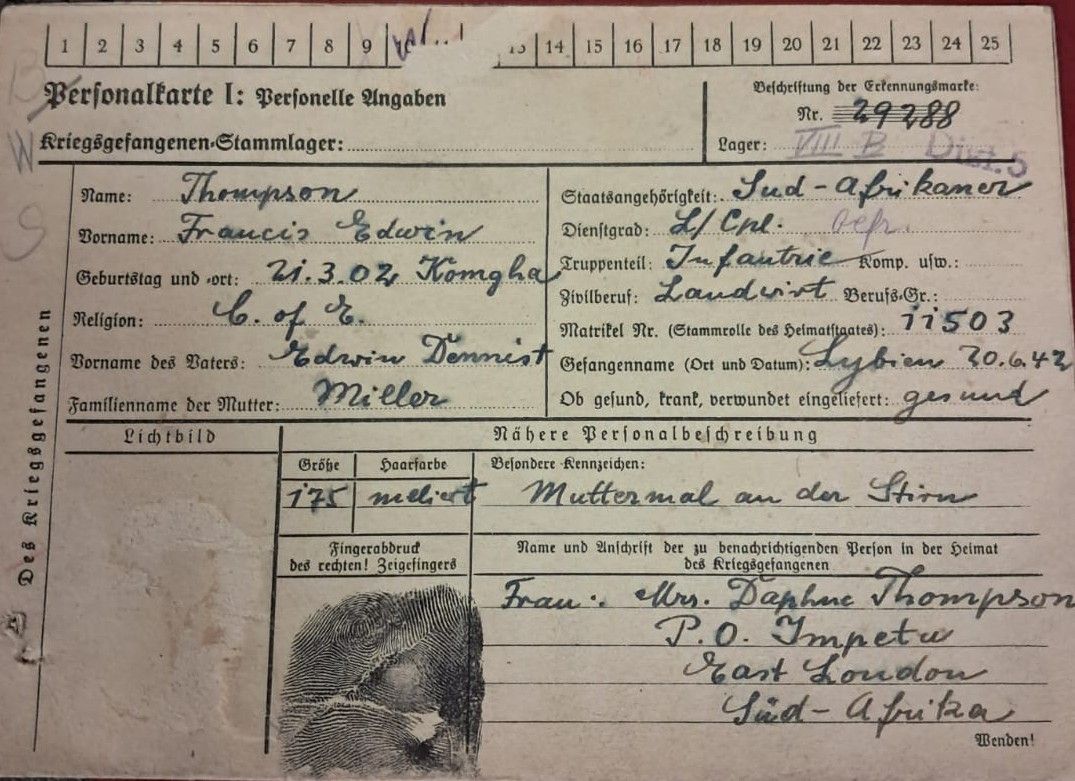 1 2 3 4 5 6 7 8 9 13 14 15 16 17 18 19 20 21 22 23 24 25
Personalkarte I: Personelle Angaben
Kriegsgefangenen-Stammlager:
Beschriftung der Erkennungsmarke:
Nr. 29288
Lager: VIII B
Des Kriegsgefangenen
Name: Thompson
Vorname: Francis Edwin
Geburtstag und -ort: 21.3.02 Komgha
Religion: C. of E.
Vorname des Vaters: Edwin Dennist
Familienname der Mutter: Miller
Staatsangehörigkeit: Süd-Afrikaner
Dienstgrad: L/Cpl. Gefr.
Truppenteil: Infantrie Komp. usw.:
Zivilberuf: Landwirt Berufs-Gr.:
Matrikel Nr. (Stammrolle des Heimatstaates): 11503
Gefangenname (Ort und Datum): Lybien 20.6.42
Ob gesund, krank, verwundet eingeliefert: gesund
Lichtbild
Nähere Personalbeschreibung
Größe Haarfarbe Besondere Kennzeichen:
175 meliert Muttermal an der Stirn
Fingerabdruck
des rechten! Zeigefingers
Name und Anschrift der zu benachrichtigenden Person in der Heimat
des Kriegsgefangenen
Frau. Mrs. Daphne Thompson
P.O. Impetu
East London
Süd-Afrika
Wenden!